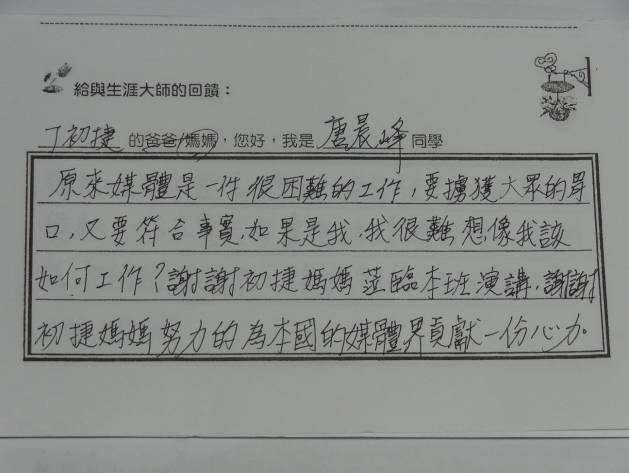 給與生涯大師的回饋：
丁初捷 的爸爸/媽媽，您好，我是 唐晨峰 同學
原來媒體是一件很困難的工作，要擄獲大眾的胃
口，又要符合事實，如果是我，我很難想像我該
如何工作？謝謝初捷媽媽蒞臨本班演講，謝謝
初捷媽媽努力的為本國的媒體界貢獻一份心力。